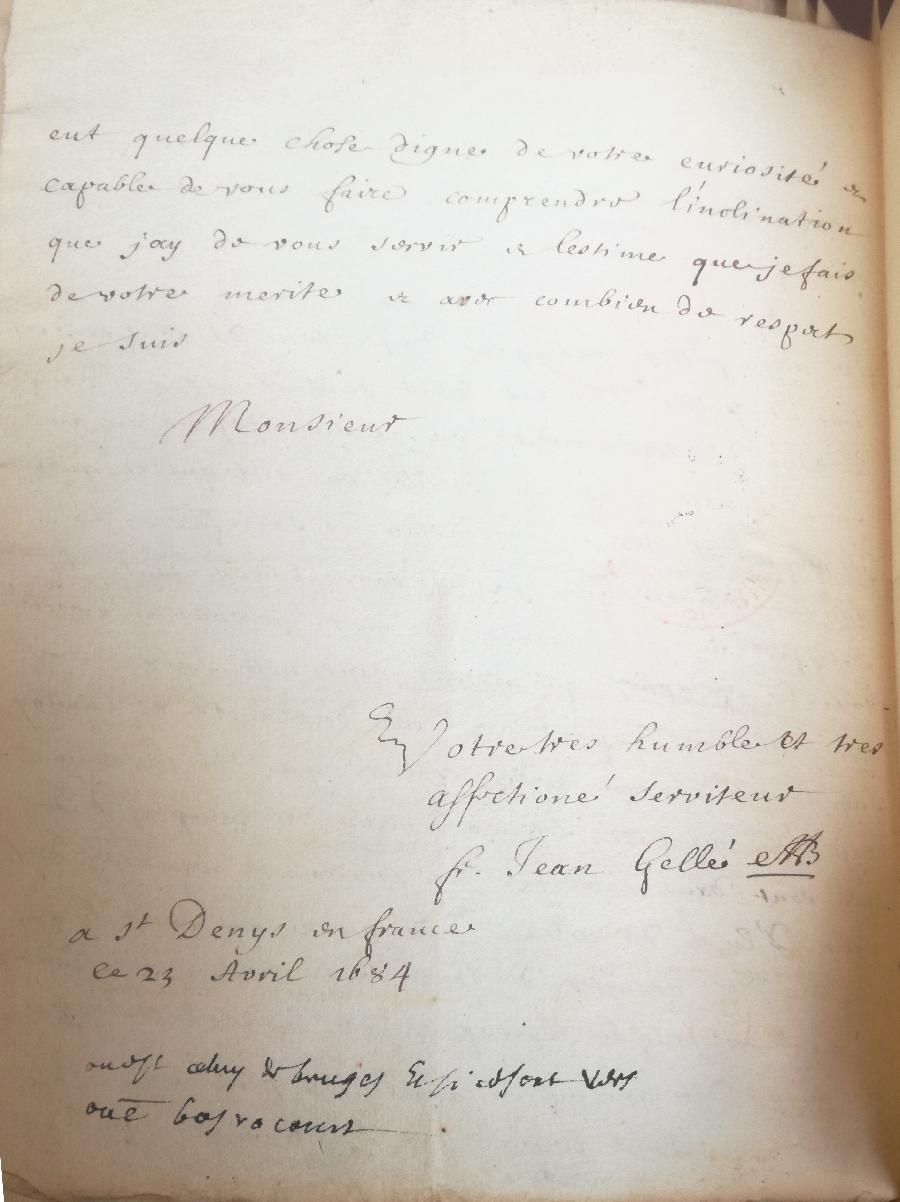 ent quelque chose digne de votre curiosité &
capable de vous faire comprendre l'inclination
que jay de vous servir & lestime que je fais
de votre merite & avec combien de respect
je suis
Monsieur
Votre tres humble et tres
affectioné serviteur
fr. Jean Gellé
a st Denys en france
le 23 Avril 1684
ou est celuy de bruges Et si ce sont vers
ou